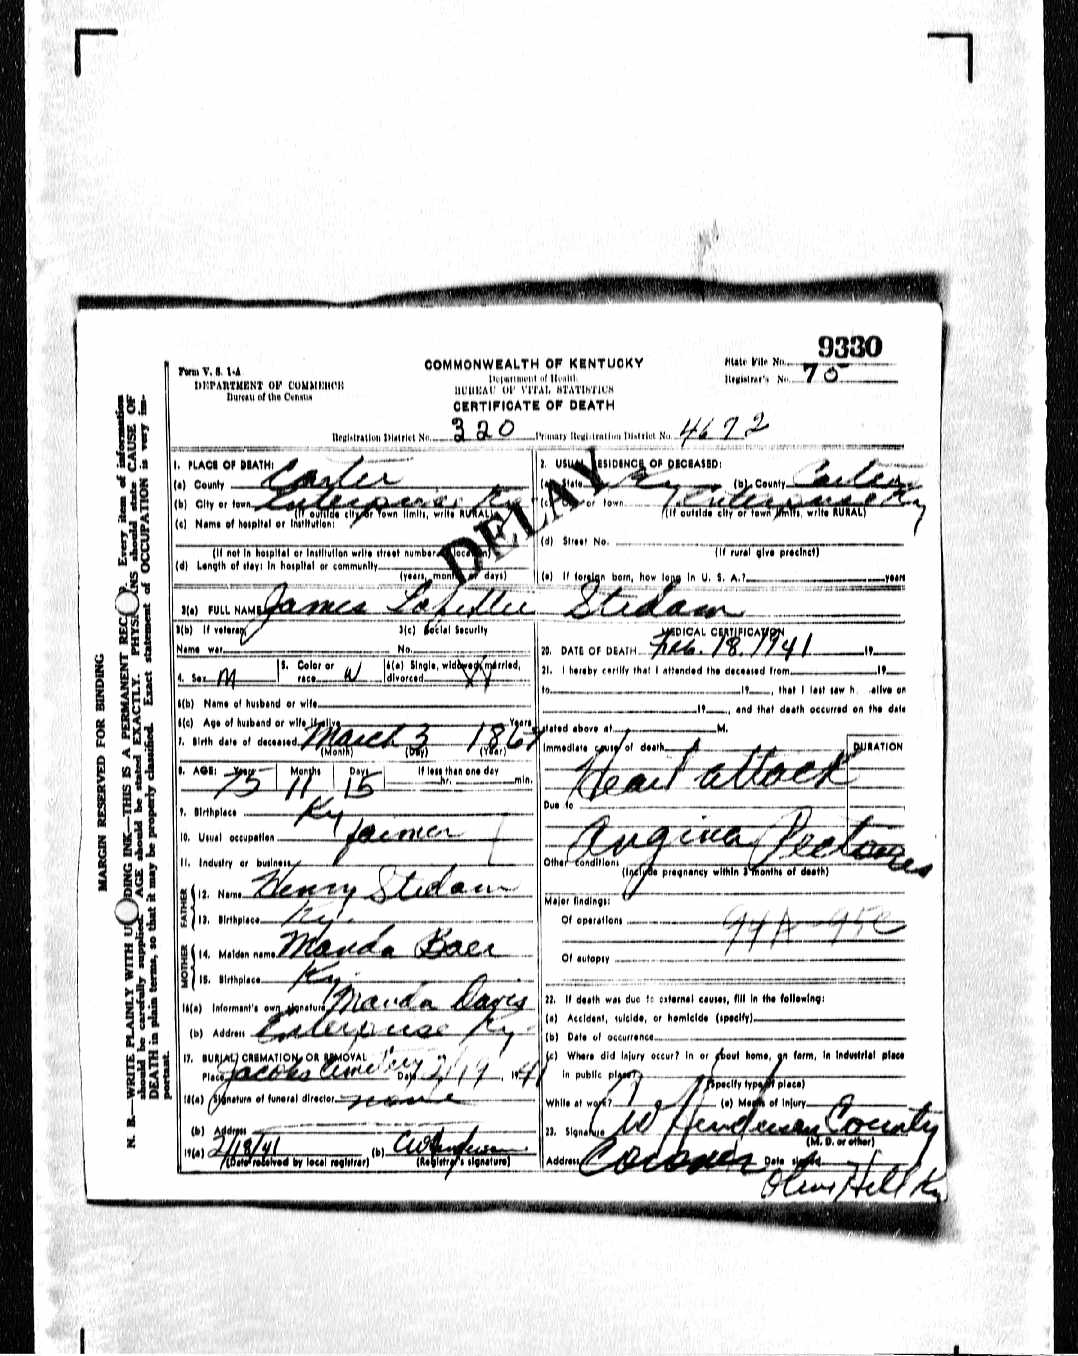 9330
State File No.
Registrar's No. 70
Form V. S. 1-A
DEPARTMENT OF COMMERCE
Bureau of the Census
COMMONWEALTH OF KENTUCKY
Department of Health
BUREAU OF VITAL STATISTICS
CERTIFICATE OF DEATH
Registration District No. 320 Primary Registration District No. 4672
DELAY
1. PLACE OF DEATH:
(a) County Carter
(b) City or town Enterprise Ky
(If outside city or town limits, write RURAL)
(c) Name of hospital or institution:
(If not in hospital or institution write street number or location)
(d) Length of stay: In hospital or community
(years, months or days)
2. USUAL RESIDENCE OF DECEASED:
(a) State Ky (b) County Carter
(c) City or town Enterprise Ky
(If outside city or town limits, write RURAL)
(d) Street No.
(If rural give precinct)
(e) If foreign born, how long in U. S. A.? years
3(a) FULL NAME James Stedam
3(b) If veteran,
Name war
3(c) Social Security
No.
4. Sex M
5. Color or
race W
6(a) Single, widowed, married,
divorced
6(b) Name of husband or wife
6(c) Age of husband or wife if alive Years
7. Birth date of deceased March 3
(Month) (Day) (Year)
8. AGE: Years 75 Months 11 Days 15 If less than one day
hr. min.
9. Birthplace Ky
10. Usual occupation farmer
11. Industry or business
FATHER
12. Name Henry Stedam
13. Birthplace Ky.
MOTHER
14. Maiden name Manda Baer
15. Birthplace Ky
16(a) Informant's own signature Manda Davis
(b) Address Enterprise Ky
17. BURIAL, CREMATION, OR REMOVAL
Place Jacobs Cemetery Date 2/19, 1941
18(a) Signature of funeral director none
(b) Address
19(a) 2/18/41 (b) CW Henderson
(Date received by local registrar) (Registrar's signature)
MEDICAL CERTIFICATION
20. DATE OF DEATH Feb. 18. 1941 19
21. I hereby certify that I attended the deceased from 19
to 19, that I last saw h. alive on
19, and that death occurred on the date
stated above at M.
Immediate cause of death DURATION
Heart attack
Due to
Angina Pectoris
Other conditions
(Include pregnancy within 3 months of death)
Major findings:
Of operations 94A
Of autopsy
22. If death was due to external causes, fill in the following:
(a) Accident, suicide, or homicide (specify)
(b) Date of occurrence
(c) Where did injury occur? In or about home, on farm, in industrial place
in public place?
(Specify type of place)
While at work? (e) Means of injury
23. Signature CW Henderson County
(M. D. or other)
Address Coroner Date signed
Olive Hill Ky
MARGIN RESERVED FOR BINDING
N. B.—WRITE PLAINLY WITH UNFADING INK—THIS IS A PERMANENT RECORD. Every item of information
should be carefully supplied. AGE should be stated EXACTLY. PHYSICIANS should state CAUSE OF
DEATH in plain terms, so that it may be properly classified. Exact statement of OCCUPATION is very im-
portant.